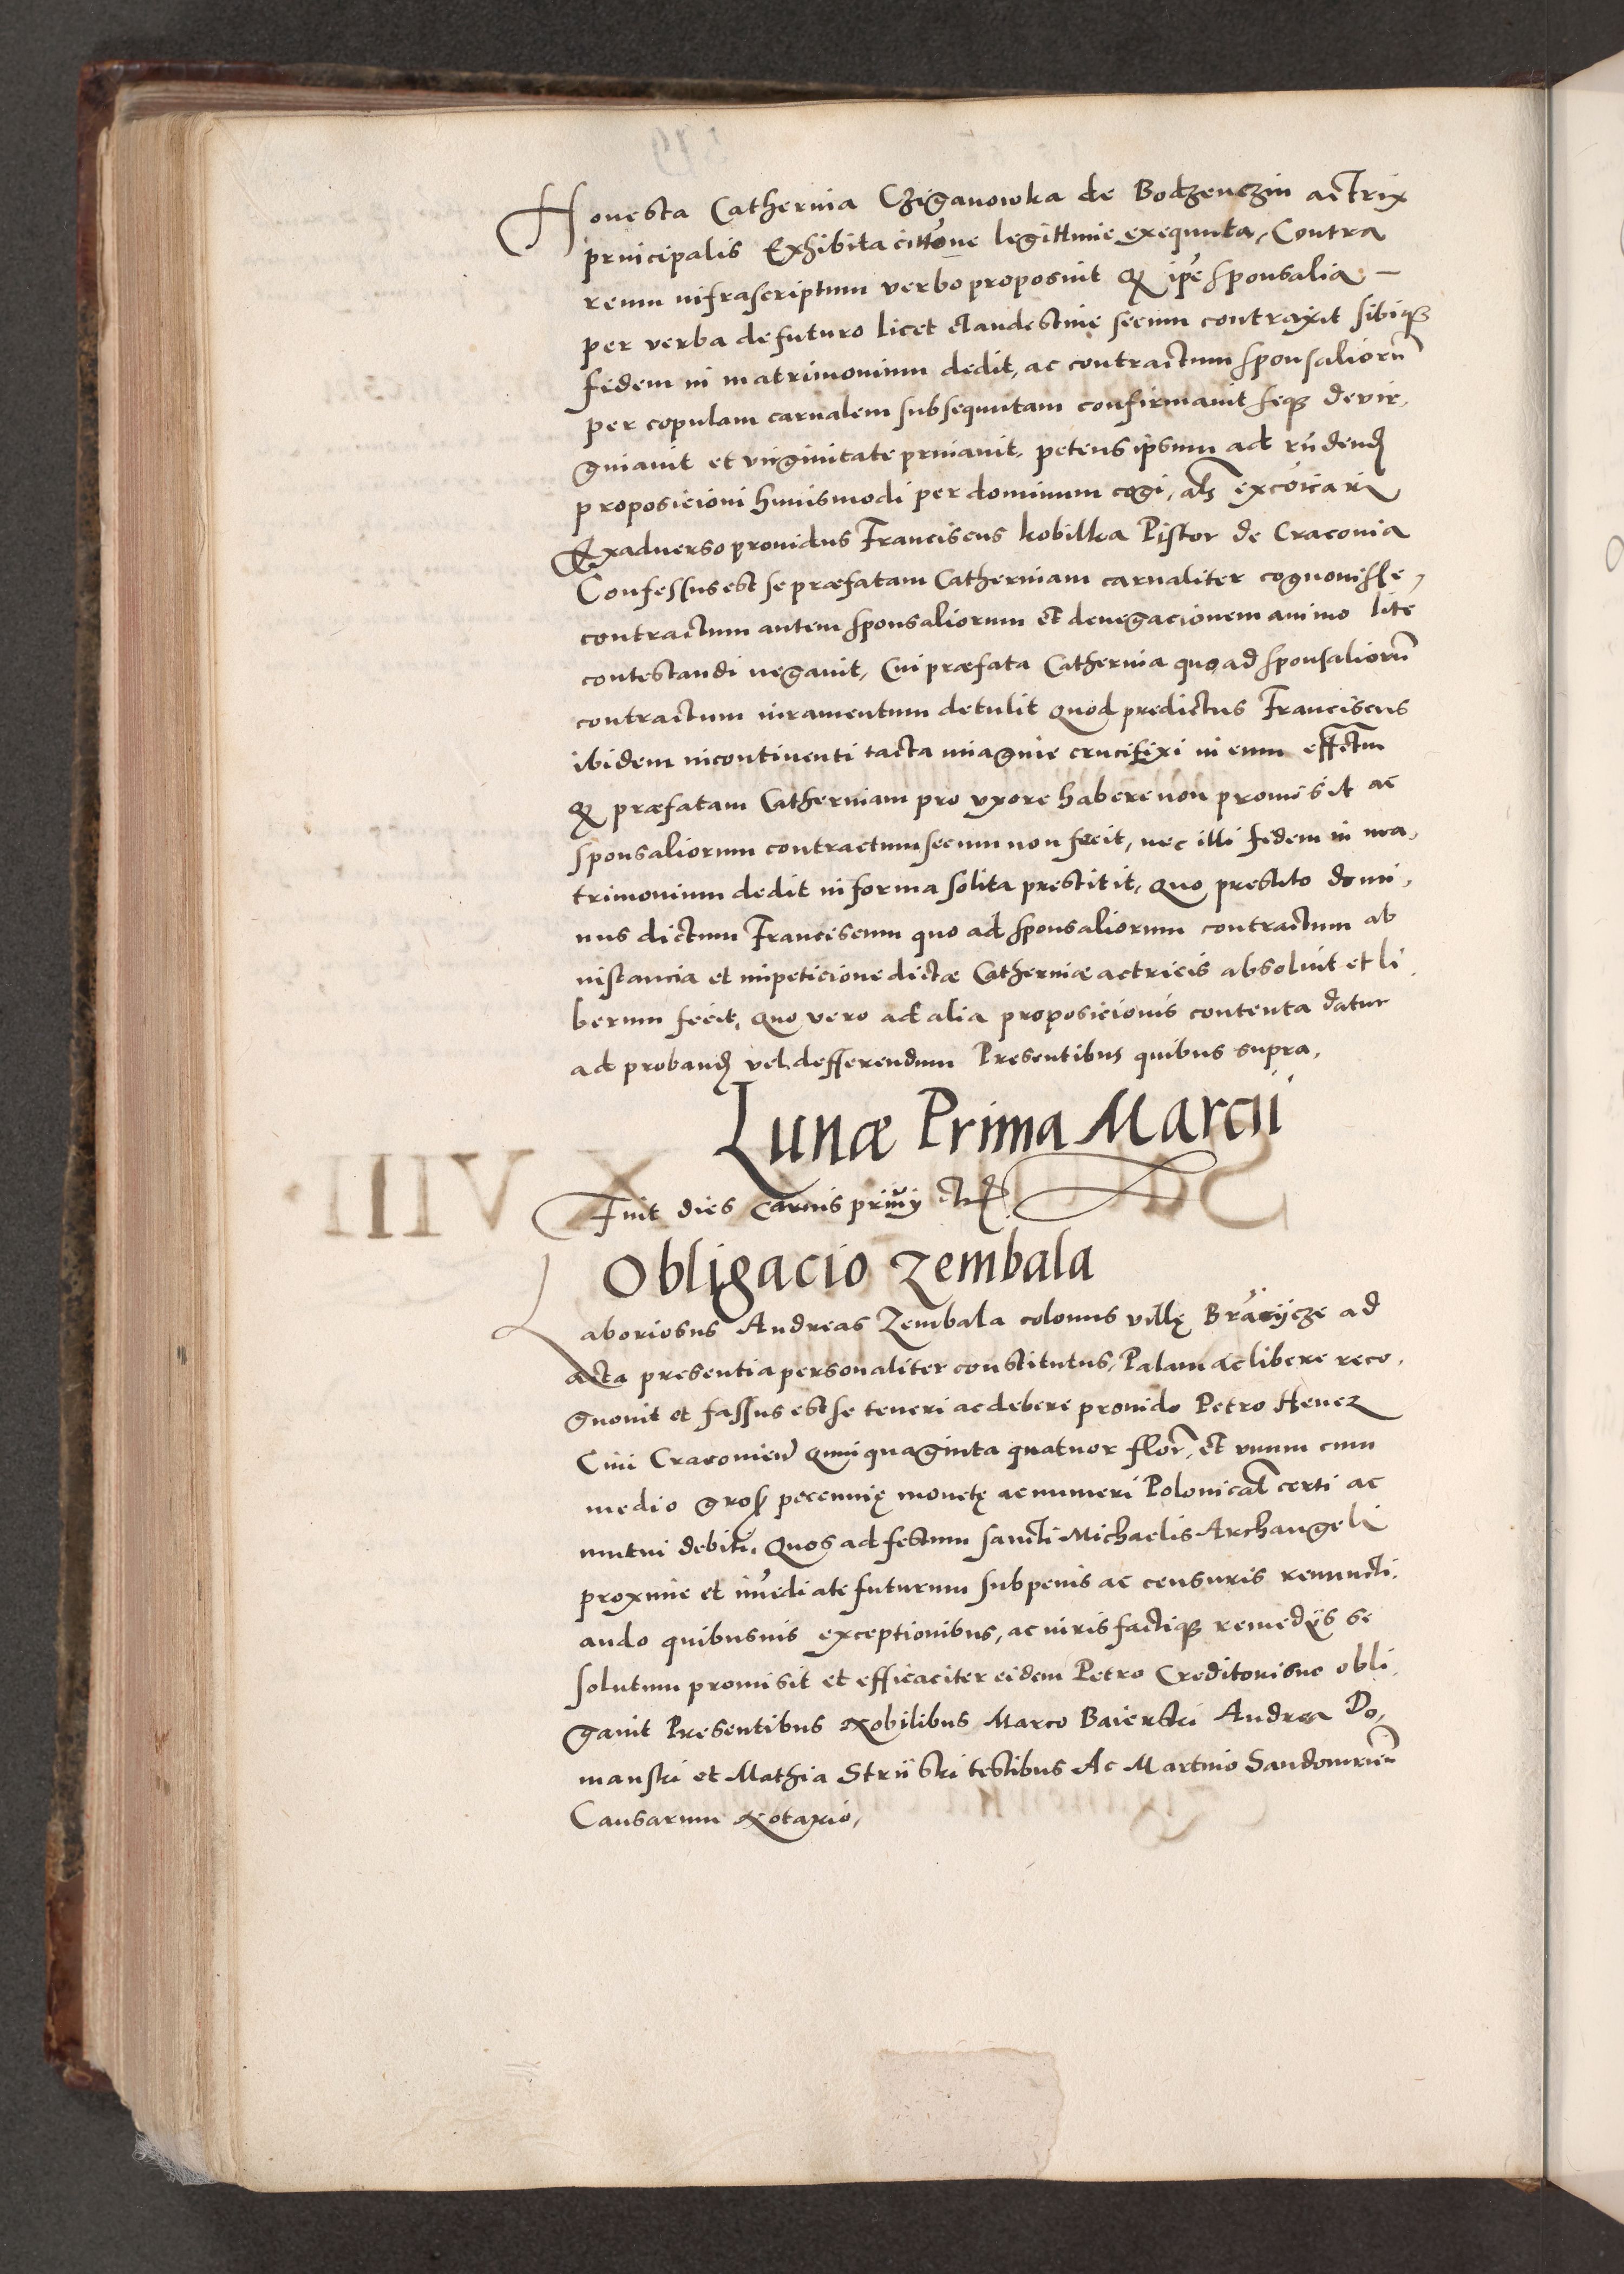 Honesta Catherina Cziganowka de Bodzenczin actrix
principalis Exhibita cittõne legittime exequuta, Contra
reum infrascriptum verbo proposuit Q ipe sponsalia
per verba de futuro licet clandestine secum contraxit sibiq3
fidem in matrimonium dedit, ac contractum sponsaliorũ
per copulam carnalem subsequutam confirmavit seq3 devir,
ginavit et virginitate privavit, petens ipsum ad rñdend
proposicioni huiusmodi per dominum cogi, als excõicari
Exadverso providus Franciscus kobilka Pistor de Cracovia
Confessus est se præfatam Catherinam carnaliter cognovisse,
contractum autem sponsaliorum et denegacionem animo lite
contestandi negavit, Cui præfata Catherina quo ad sponsaliorũ
contractum iuramentum detulit Quod predictus Franciscus
ibidem incontinenti tacta imagine crucifixi in eum effectum
Q præfatam Catherinam pro uxore habere non promisit ac
sponsaliorum contractum secum non fecit, nec illi fidem in ma,
trimonium dedit in forma solita prestitit, Quo prestito domi,
nus dictum Franciscum quo ad sponsaliorum contractum ab
instancia et impeticione dictæ Catherinæ actricis absolvit et li
berum fecit, Quo vero ad alia proposicionis contenta datur
ad proband vel defferendum Presentibus quibus supra,
Lunæ Prima Marcii
Fuit dies carnis privy
Obligacio Zembala
Laboriosus Andreas Zembala colonus villę ad
acta presentia personaliter constitutus, Palam ac libere reco,
gnovit et fassus est se teneri ac debere provido Petro Henez
Civi Cracovien Quinquaginta quatuor flor, et unum cum
medio gros pecunię monetę ac numeri Polonical certi ac
mutui debiti, Quos ad festum sancti Michaelis Archangeli
proxime et imediate futurum sub penis ac censuris renuncti,
ando quibusvis exceptionibus, ac iuris factiq3 remedys se
solutum promisit et efficaciter eidem Petro Creditori suo obli,
gavit Presentibus Nobilibus Marco Baierski Andrea Do,
manski et Mathia Striiski testibus Ac Martino Sandomirien
Causarum Notario,